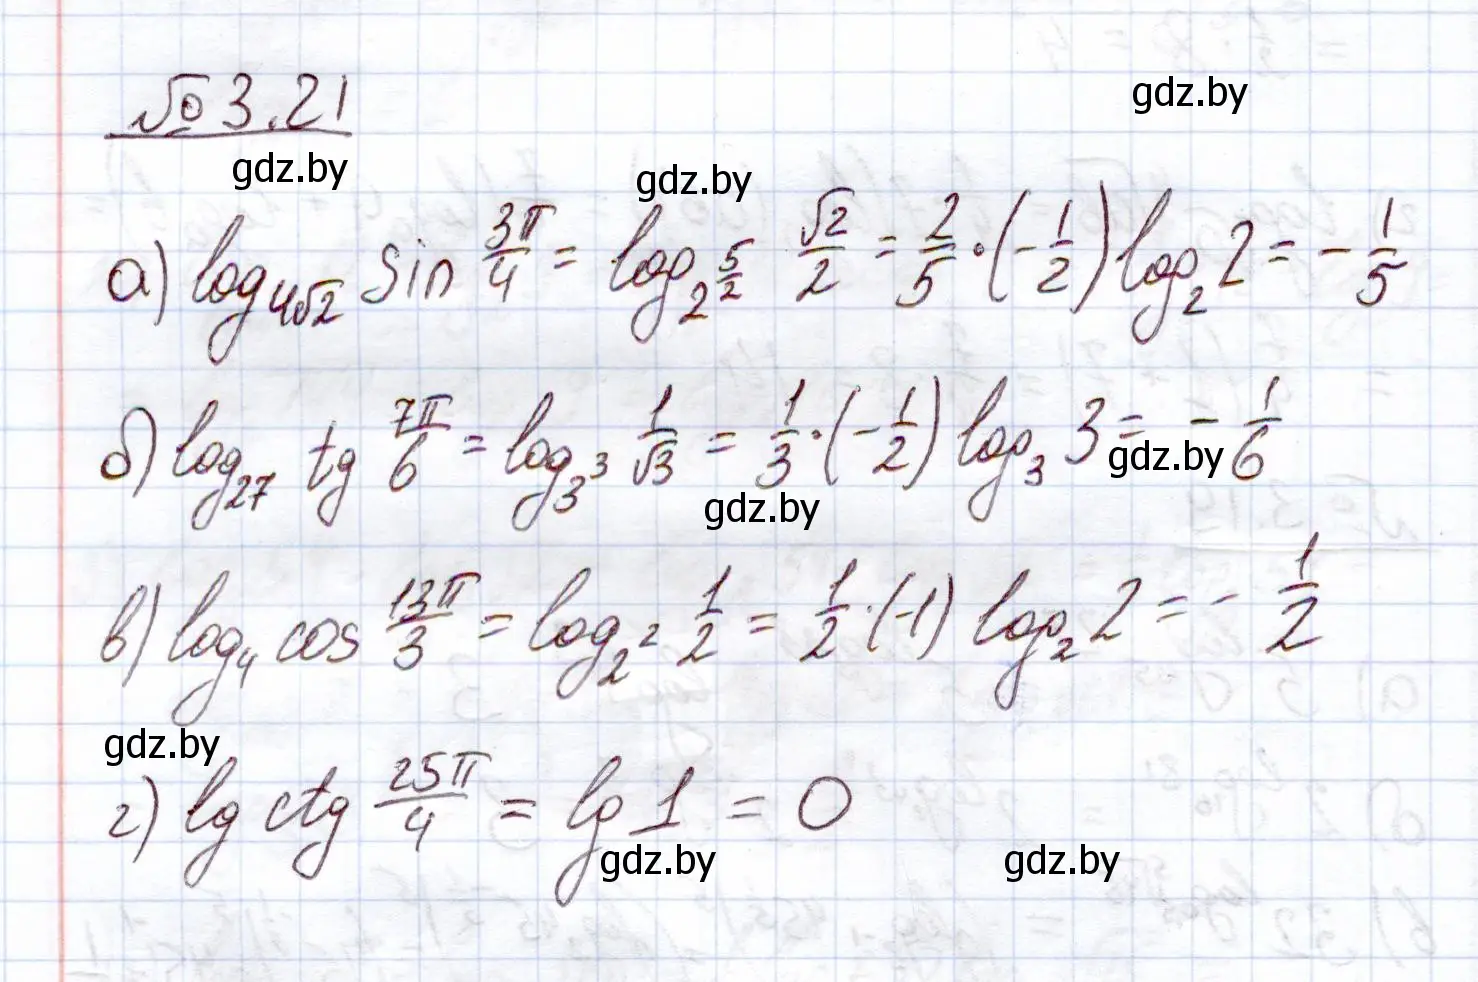 № 3.21
gdz.by
gdz.by
gdz.by
а) log_{4√2} sin 3π/4 = log_{2^{5/2}} √2/2 = 2/5 · (-1/2) log_2 2 = - 1/5
б) log_{27} tg 7π/6 = log_{3^3} 1/√3 = 1/3 · (-1/2) log_3 3 = - 1/6
gdz.by
gdz.by
в) log_4 cos 13π/3 = log_{2^2} 1/2 = 1/2 · (-1) log_2 2 = - 1/2
gdz.by
г) lg ctg 25π/4 = lg 1 = 0
gdz.by
gdz.by